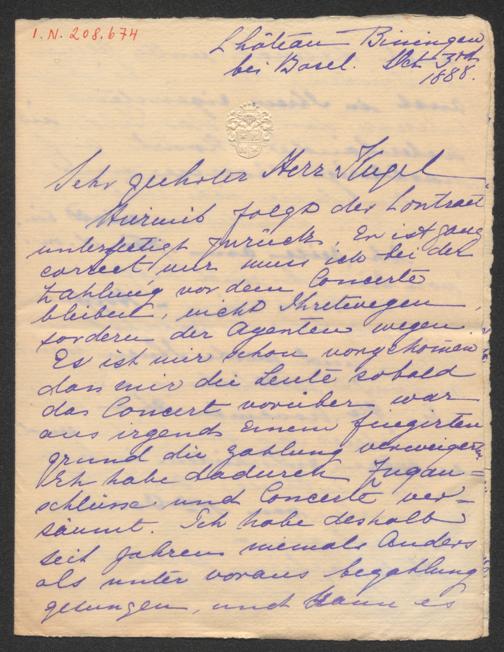 I.N. 208.674
Château Biningen
bei Basel. Oct 3rd
1888.
Sehr geehrter Herr Kugel
Hiermit folgt der Contract
unterfertigt zurück. Er ist ganz
correct nur muss ich bei der
Zahlung vor dem Concerte
bleiben, nicht Ihretwegen
sondern der Agenten wegen.
Es ist mir schon vorgekomen
dass mir die Leute sobald
das Concert vorüber war
aus irgend einem fingirten
grund die Zahlung verweigerten
Ich habe dadurch Zugan=
schlüsse und Concerte ver=
säumt. Ich habe deshalb
seit Jahren niemals Anders
als unter voraus bezahlung
gesungen, und kann es